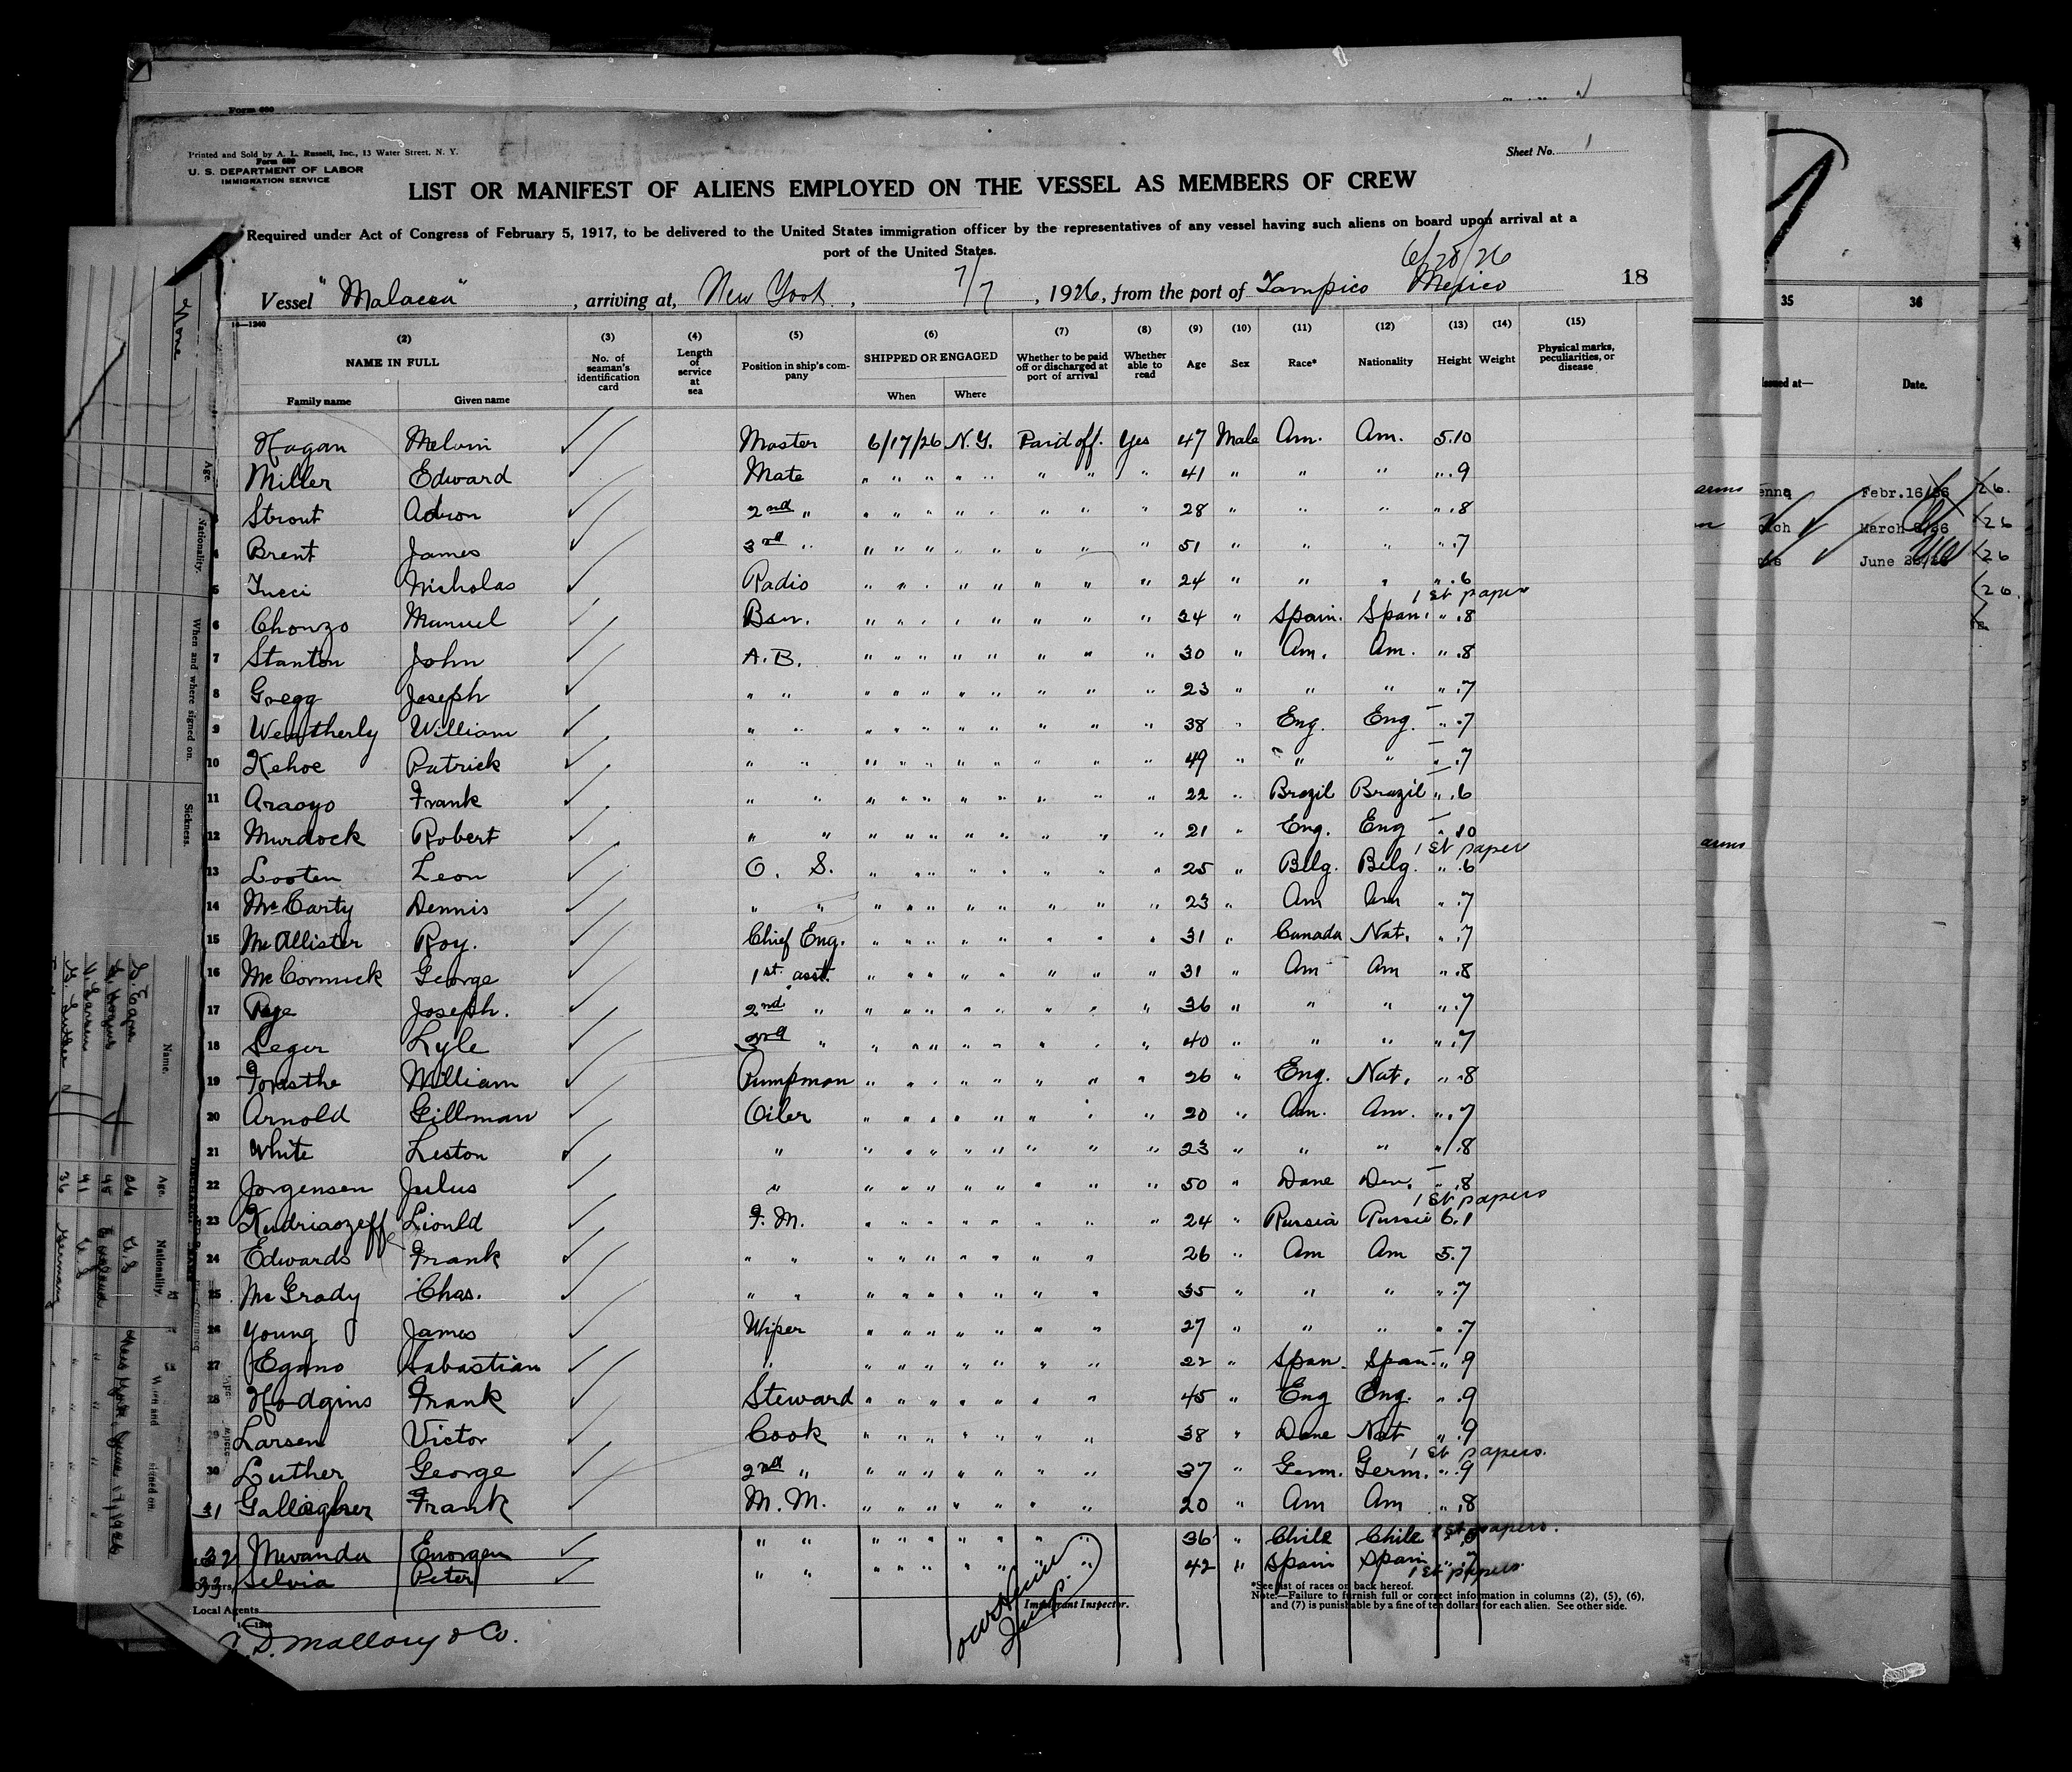 Form 680
Printed and Sold by A. L. Russell, Inc., 13 Water Street, N. Y.
Form 680
U. S. DEPARTMENT OF LABOR
IMMIGRATION SERVICE
Sheet No. 1
LIST OR MANIFEST OF ALIENS EMPLOYED ON THE VESSEL AS MEMBERS OF CREW
Required under Act of Congress of February 5, 1917, to be delivered to the United States immigration officer by the representatives of any vessel having such aliens on board upon arrival at a
port of the United States.
6/28/26
Vessel "Malacca", arriving at, New York, 7/7, 1926, from the port of Tampico Mexico
18
(2) (3) (4) (5) (6) (7) (8) (9) (10) (11) (12) (13) (14) (15)
NAME IN FULL No. of seaman's identification card Length of service at sea Position in ship's company SHIPPED OR ENGAGED Whether to be paid off or discharged at port of arrival Whether able to read Age Sex Race* Nationality Height Weight Physical marks, peculiarities, or disease
Family name Given name When Where
Hagan Melvin Master 6/17/26 N.Y. Paid off. Yes 47 Male Am. Am. 5.10
Miller Edward Mate " " " " " " " " 41 " " " " .9
3 Strout Adron 2nd " " " " " " " " " 28 " " " " .8
4 Brent James 3rd " " " " " " " " " 51 " " " " .7
5 Tucci Nicholas Radio " " " " " " " " 24 " " " " .6
1st paper
6 Chonzo Manuel Bsn. " " " " " " " " 34 " Spain. Span. " .8
7 Stanton John A.B. " " " " " " " " 30 " Am. Am. " .8
8 Gregg Joseph " " " " " " " " " " 23 " " " " .7
9 Weatherly William " " " " " " " " " " 38 " Eng. Eng. " .7
10 Kehoe Patrick " " " " " " " " " " 49 " " " " .7
11 Araoyo Frank " " " " " " " " " " 22 " Brazil Brazil " .6
12 Murdock Robert " " " " " " " " " " 21 " Eng. Eng " .10
1st paper
13 Looten Leon O. S. " " " " " " " " 25 " Bllg. Bllg. " .6
14 McCarty Dennis " " " " " " " " " " 23 " Am Am " .7
15 McAllister Roy. Chief Eng. " " " " " " " " 31 " Canada Nat. " .7
16 McCormick George 1st. asst. " " " " " " " " 31 " Am Am " .8
17 Pye Joseph. 2nd " " " " " " " " " 36 " " " " .7
18 Seger Lyle 3rd " " " " " " " " " 40 " " " " .7
19 Forasthe William Pumpman " " " " " " " " 26 " Eng. Nat. " .8
20 Arnold Gillman Oiler " " " " " " " " 20 " Am. Am. " .7
21 White Leston " " " " " " " " " 23 " " " " .8
22 Jorgensen Julus " " " " " " " " " 50 " Dane Den. " .8
1st papers
23 Kudriaozeff Liould F. M. " " " " " " " " 24 " Russia Russia 6.1
24 Edwards Frank " " " " " " " " " 26 " Am Am 5.7
25 McGrady Chas. " " " " " " " " " 35 " " " " .7
26 Young James Wiper " " " " " " " 27 " " " " .7
27 Egano Sabastian " " " " " " " " 22 " Span. Span " .9
28 Hodgins Frank Steward " " " " " " " 45 " Eng Eng. " .9
29 Larsen Victor Cook " " " " " " " 38 " Dane Nat " .9
1st papers.
30 Luther George 2nd " " " " " " " " 37 " Germ. Germ. " .9
31 Gallagher Frank M. M. " " " " " " " 20 " Am Am " .8
32 Mevanda Enorgen " " " " " " " " " 36 " Chile Chile 1st papers.
33 Selvia Peter " " " " " " " " " 42 " Spain Spain " .7
1st papers
Owners
Local Agents
Immigrant Inspector.
*See list of races on back hereof.
Note.—Failure to furnish full or correct information in columns (2), (5), (6),
and (7) is punishable by a fine of ten dollars for each alien. See other side.
C. D. Mallory & Co.
35 36
Issued at— Date.
Febr. 16/26
March
June
arms
arms
None
Age.
Nationality.
When and where signed on.
Sickness.
Name.
Age.
Nationality.
When and signed on.
V. Larsen 41 U.S.
G. Luther 36 Germany
New York June 17, 1926